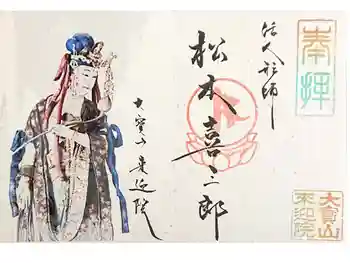 奉拝
活人形師
松本喜三郎
大寶山来迎院
大寳山
来迎院